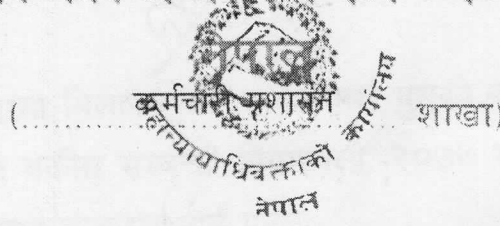 (........कर्मचारी प्रशासन........ शाखा)
महान्यायाधिवक्ताको कार्यालय
नेपाल